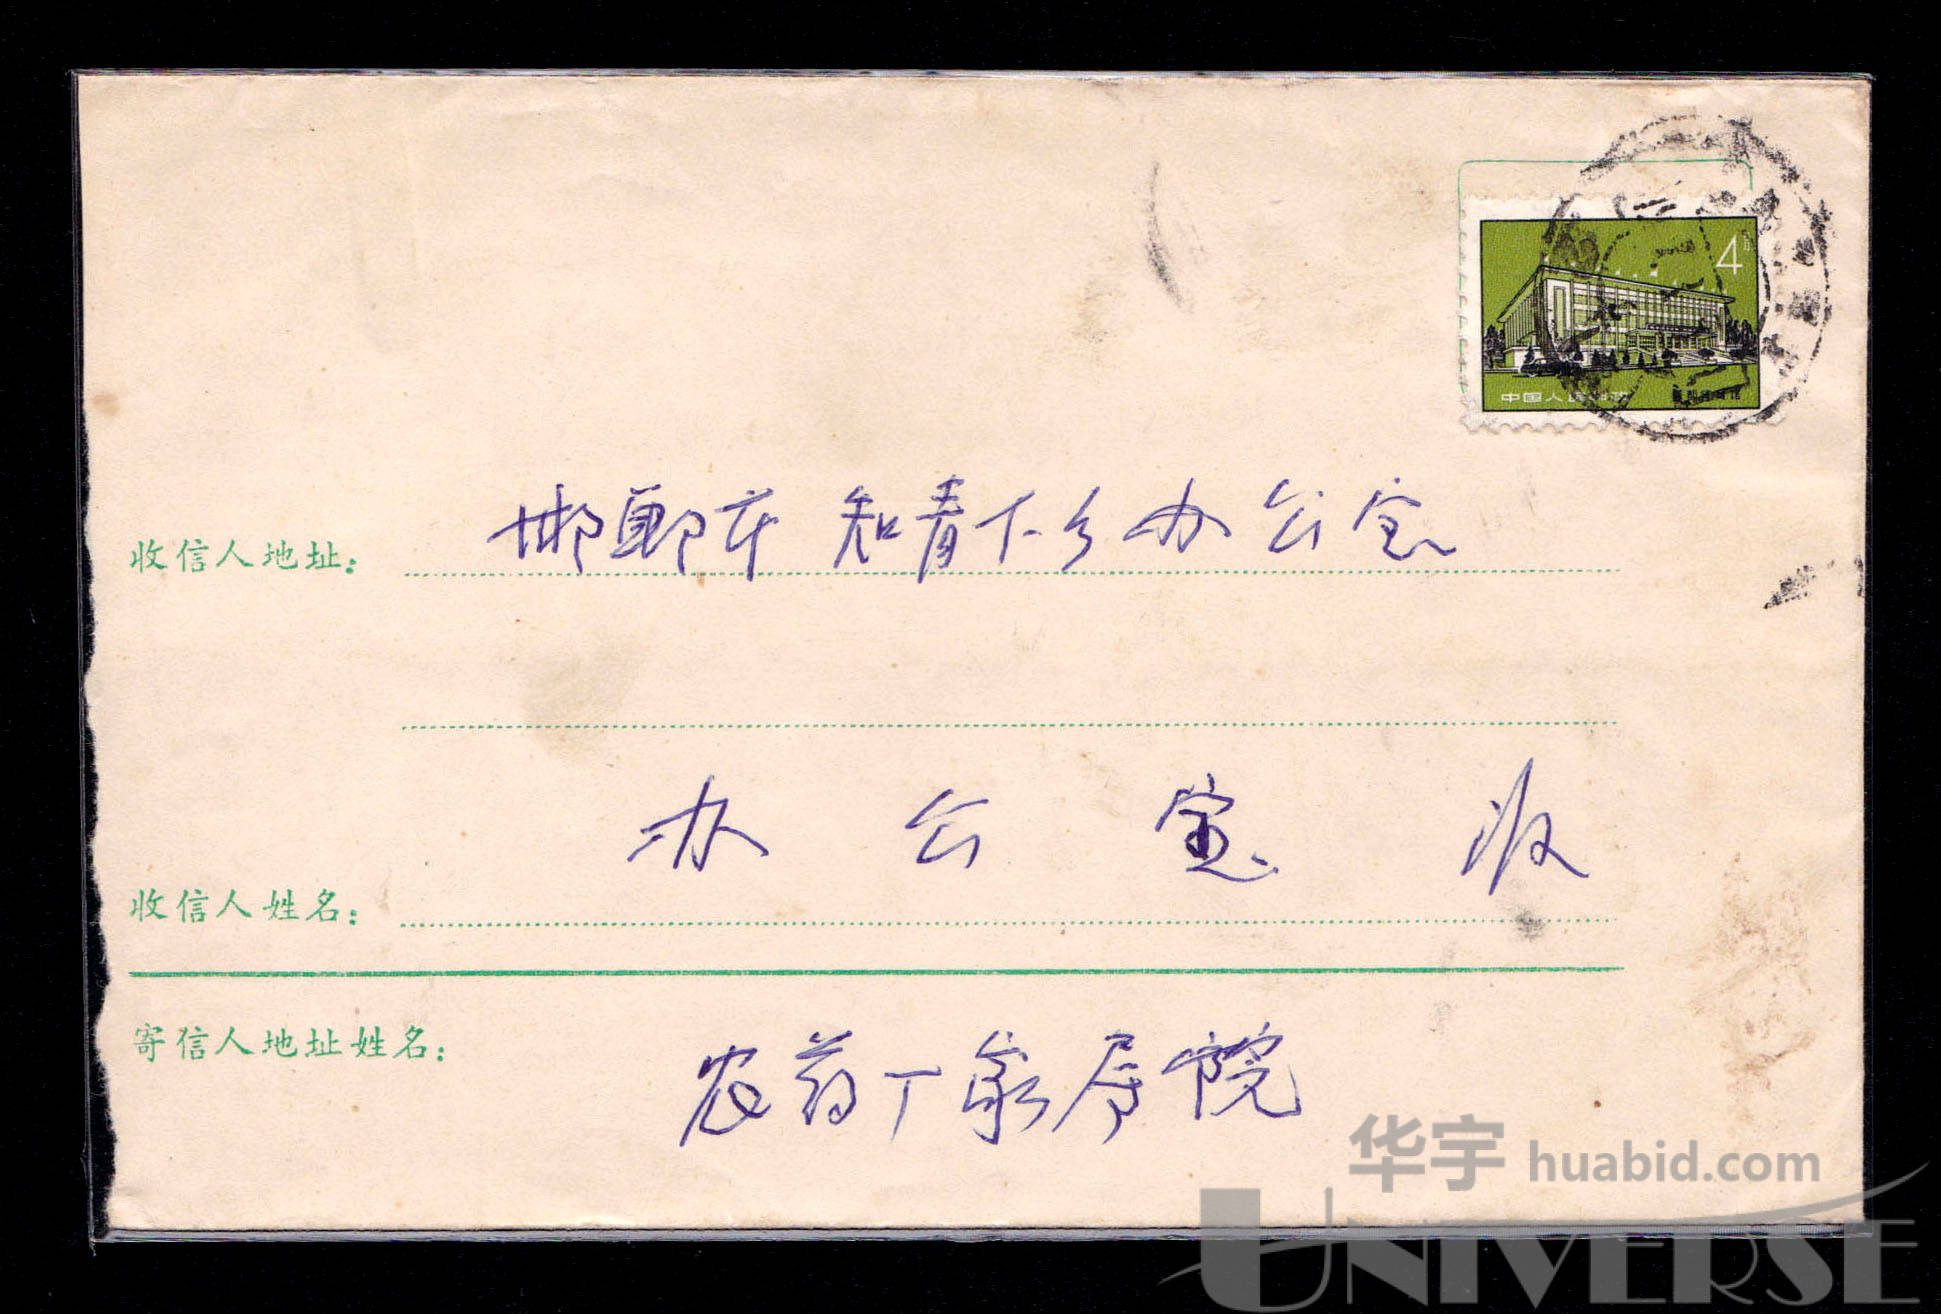 4
中国人民邮政
收信人地址: 邯郸市 知青下乡办公室
收信人姓名: 办公室 收
寄信人地址姓名: 农药厂家属院
华宇 huabid.com
UNIVERSE